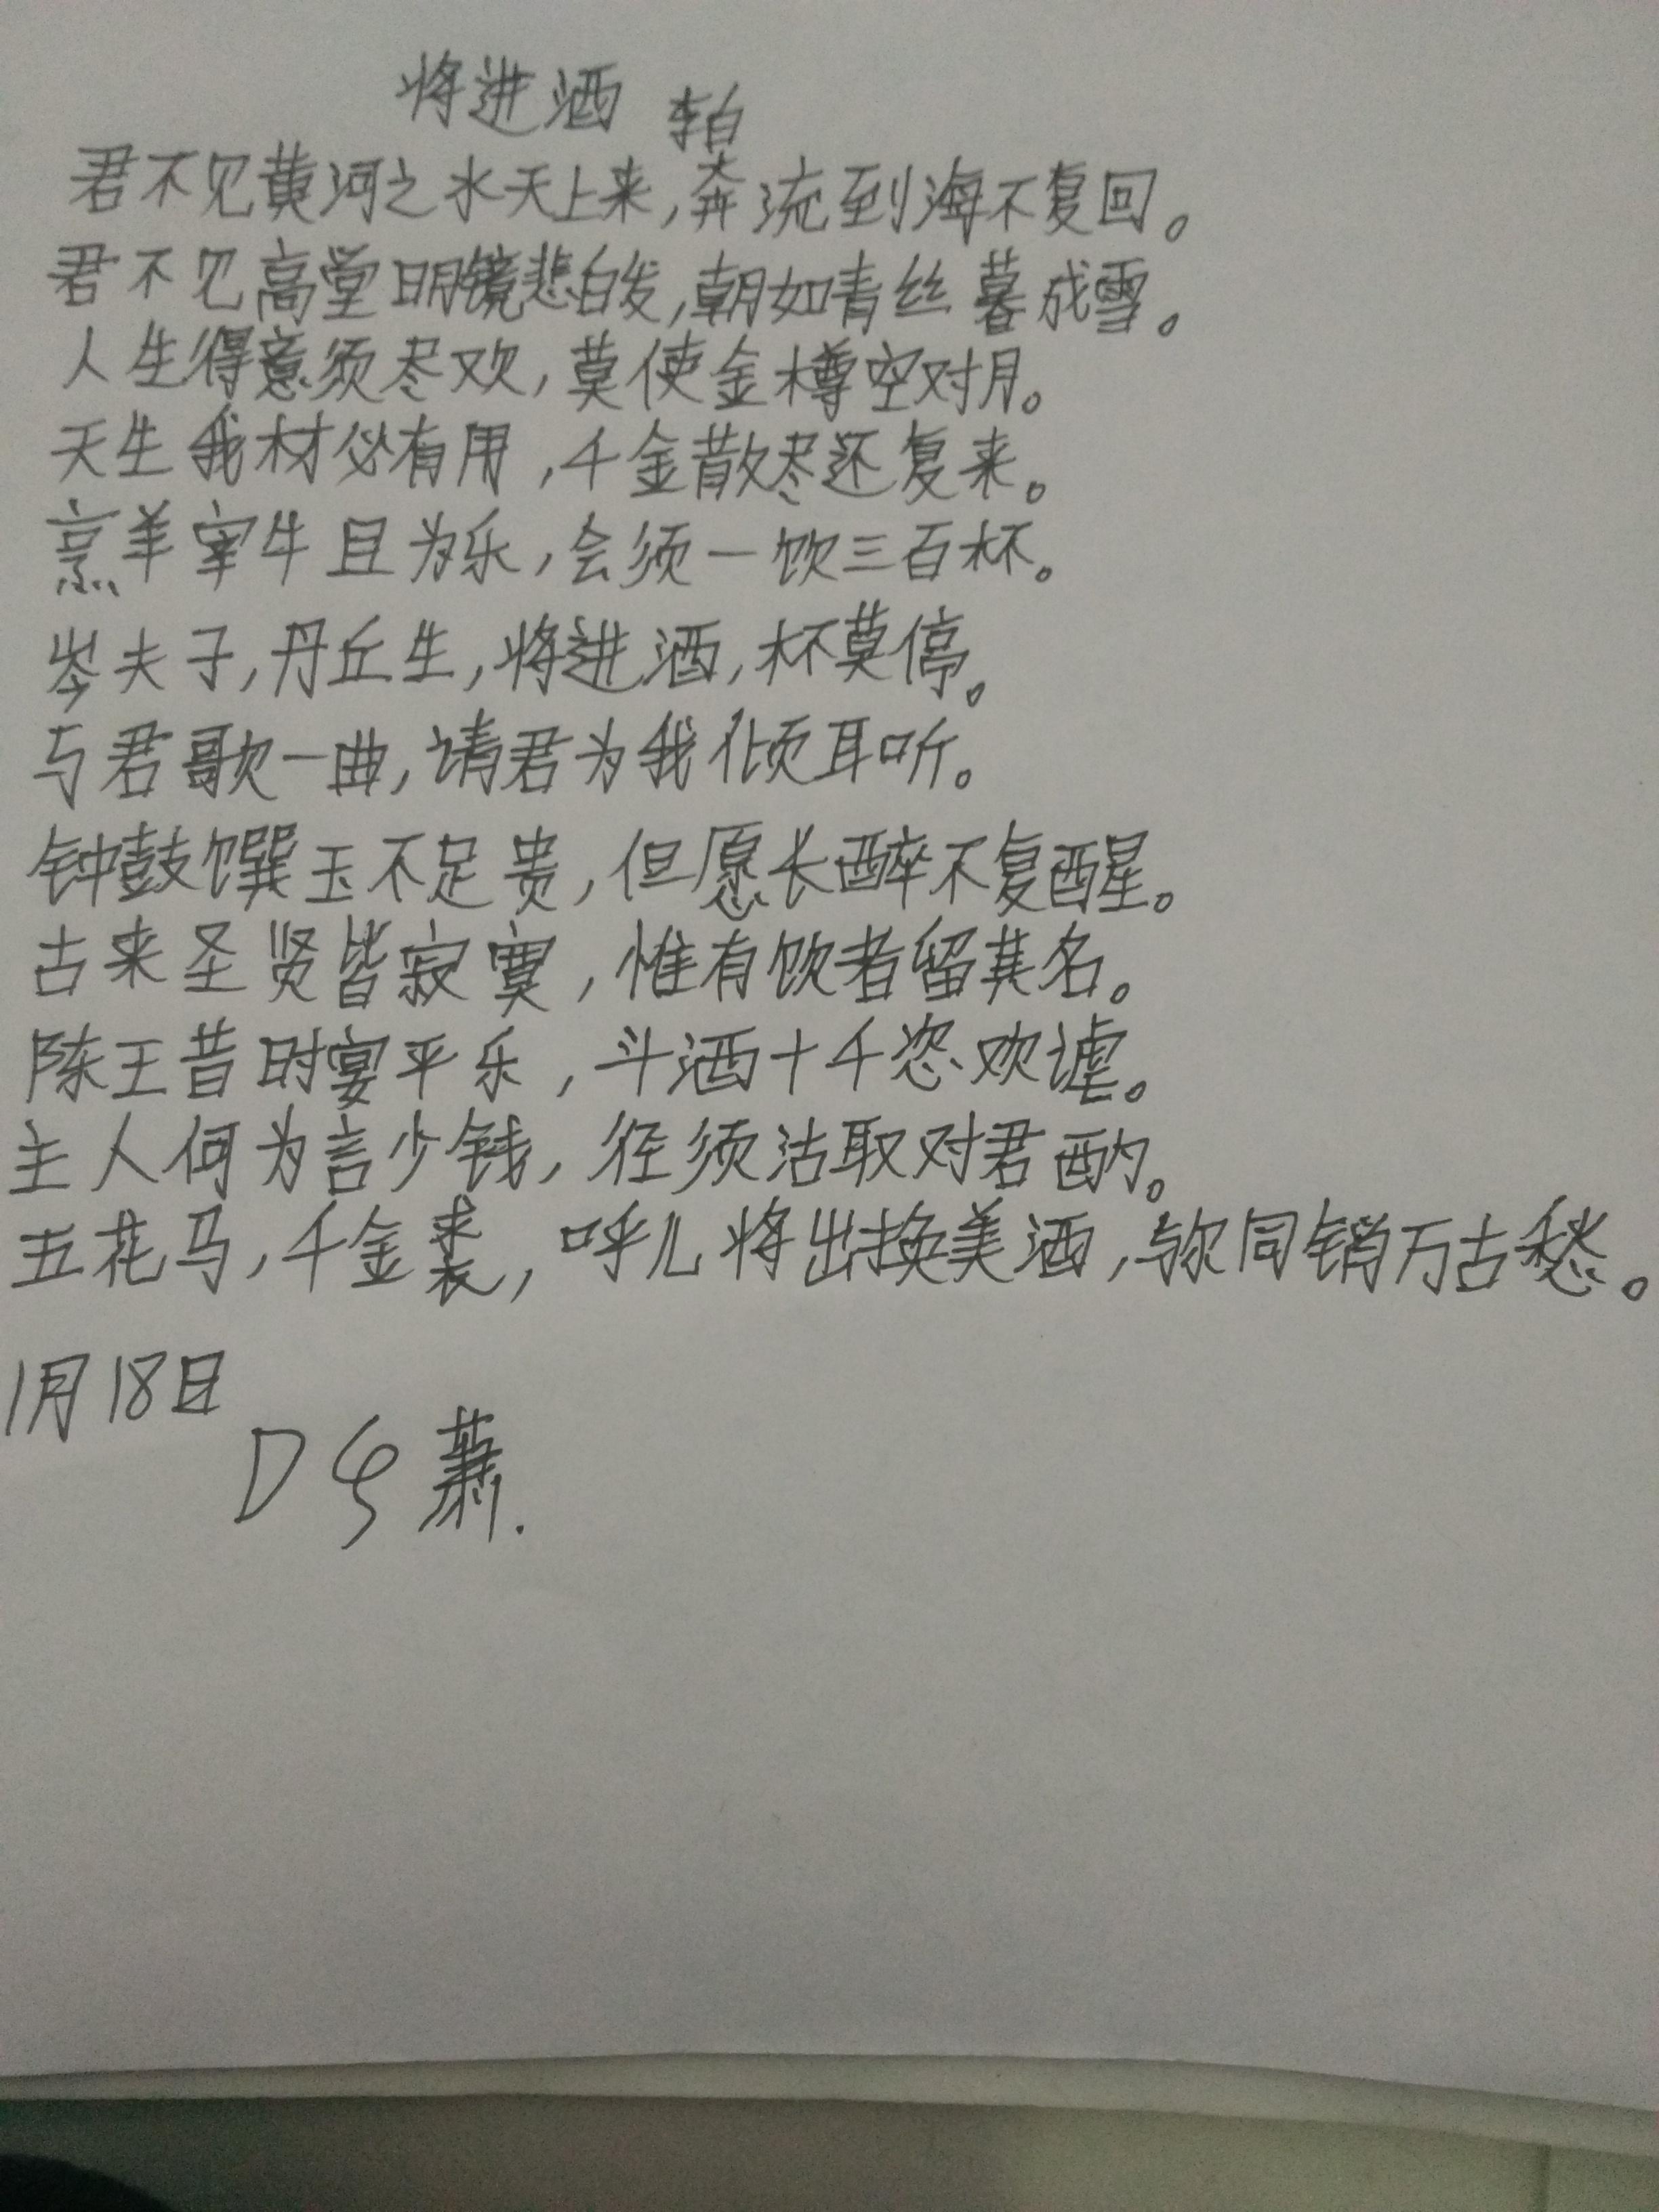 将进酒 李白
君不见黄河之水天上来,奔流到海不复回。
君不见高堂明镜悲白发,朝如青丝暮成雪。
人生得意须尽欢,莫使金樽空对月。
天生我材必有用,千金散尽还复来。
烹羊宰牛且为乐,会须一饮三百杯。
岑夫子,丹丘生,将进酒,杯莫停。
与君歌一曲,请君为我倾耳听。
钟鼓馔玉不足贵,但愿长醉不复醒。
古来圣贤皆寂寞,惟有饮者留其名。
陈王昔时宴平乐,斗酒十千恣欢谑。
主人何为言少钱,径须沽取对君酌。
五花马,千金裘,呼儿将出换美酒,与尔同销万古愁。
1月18日
D 萧.